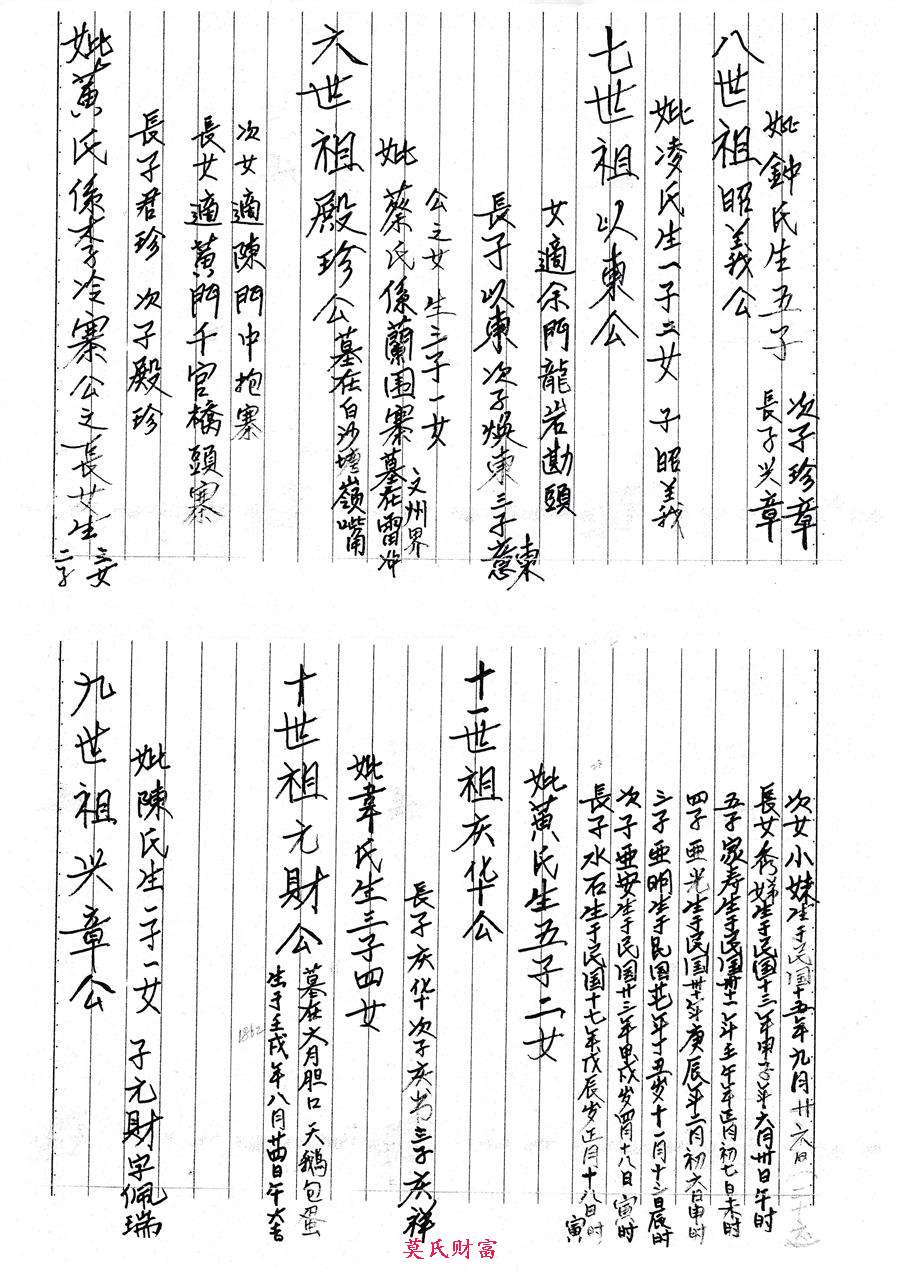 妣黄氏係李冷寨公之長女生二子三女
長子君珍 次子殿珍
長女適黄門千官橋頭寨
次女適陳門中抱寨
六世祖殿珍公墓在白沙壇嶺嘴
妣蔡氏係蘭围寨墓在雷冲文州界
公之女生三子一女
長子以東次子焕東三子薏東
女適余門龍岩勘頭
七世祖以東公
妣凌氏生一子二女 子昭義
八世祖昭義公
妣鍾氏生五子
長子兴章
次子珍章
九世祖兴章公
妣陳氏生一子一女 子元財字佩瑞
十世祖元財公
生于壬戌年八月廿四日午大吉
1862
墓在大月胆口天鹅包蛋
妣韋氏生三子四女
長子庆华次子庆书三子庆祥
十一世祖庆华公
妣黄氏生五子二女
長子水石生于民国十七年戊辰岁正月十八日寅时
次子亜安生于民国廿三年甲戌岁四月十八日寅时
三子亜明生于民国廿六年丁丑岁十一月十三日辰时
四子亜光生于民国廿九年庚辰年二月初六日申时
五子家寿生于民国卅一年壬午年正月初七日未时
長女秀娣生于民国十三年甲子年六月卅日午时
次女小妹生于民国十五年九月廿六日
莫氏财富